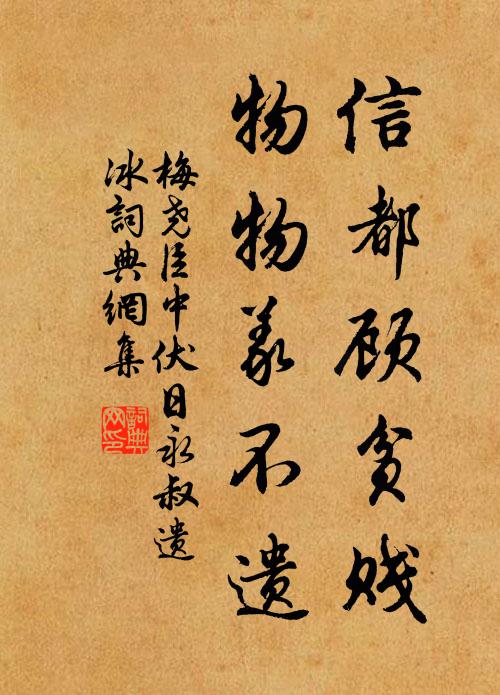 信都顾贫贱
物物义不遗
梅尧臣中伏日永叔遗
冰词典网集
词典网印